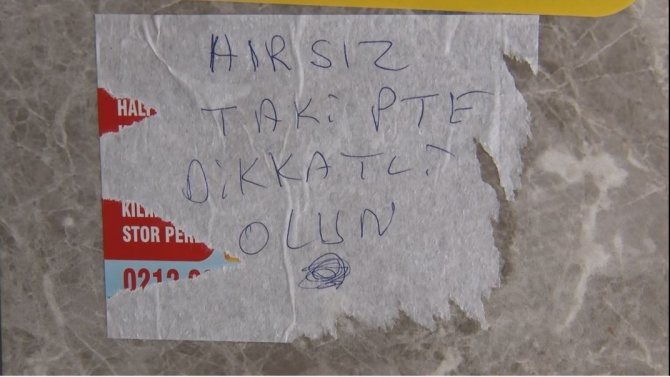 HIRSIZ
TAKiPTE
DiKKATLi
OLUN
HALI
STOR PER
0212